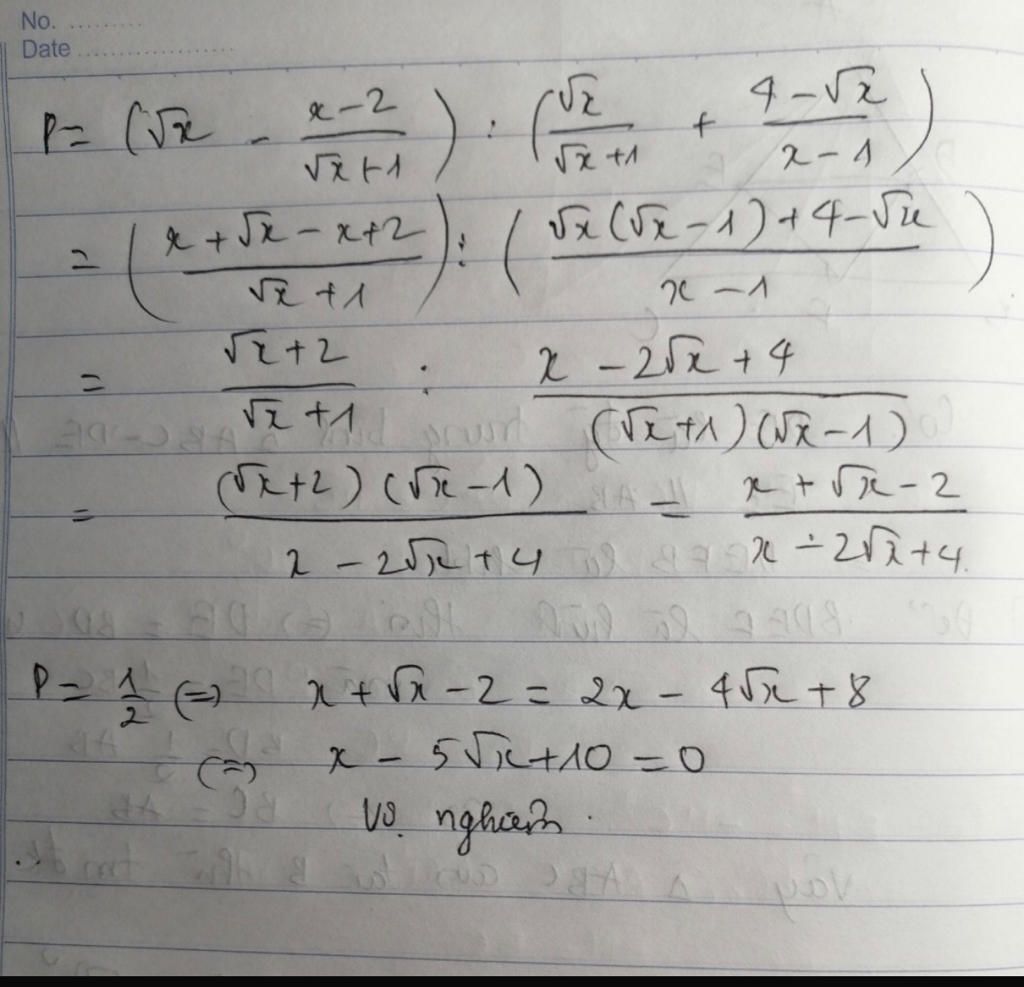 No. .........
Date ....................
P = (√x - (x-2)/(√x+1)) : (√x/(√x+1) + (4-√x)/(x-1))
= ((x+√x-x+2)/(√x+1)) : ((√x(√x-1)+4-√x)/(x-1))
= (√x+2)/(√x+1) : (x-2√x+4)/((√x+1)(√x-1))
= ((√x+2)(√x-1))/(x-2√x+4) = (x+√x-2)/(x-2√x+4)
P = 1/2 (=) x+√x-2 = 2x-4√x+8
(=) x-5√x+10=0
Vô nghiệm.